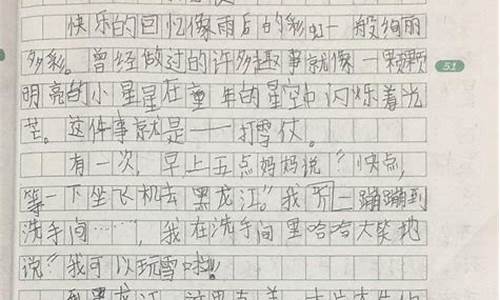 快乐的回忆像雨后的彩虹一般绚丽
多彩。曾经做过的许多趣事就像一颗颗
51
明亮的小星星在童年的星空中闪烁着光
芒。这件事就是——打雪仗。
有一次，早上五点妈妈说“快点，
等一下坐飞机去黑龙江。”我一蹦蹦到
洗手间……，我在洗手间里哈哈大笑地
说“我可以玩雪啦！
到黑龙江，这里